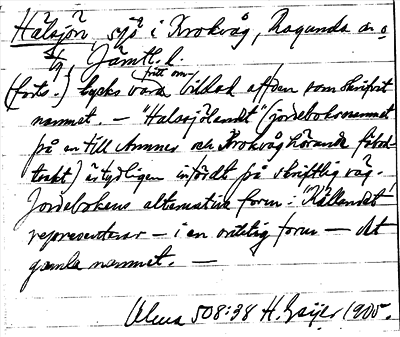 Hälsjön, sjö i Krokvåg, Ragunda sn o
Jämtl. l.
(forts.) tycks vara bildad af den som skrifvit
fritt om
namnet. — "Halasjölandt" (jordeboksnamnet
på en till Ammer och Krokvåg hörande fäbod-
trakt) är tydligen infördt på skriftlig väg.
Jordebokens alternativa form: "Källandet"
representerar — i en oriktig form — det
gamla namnet. —
508:38 H. Geijer 1905.